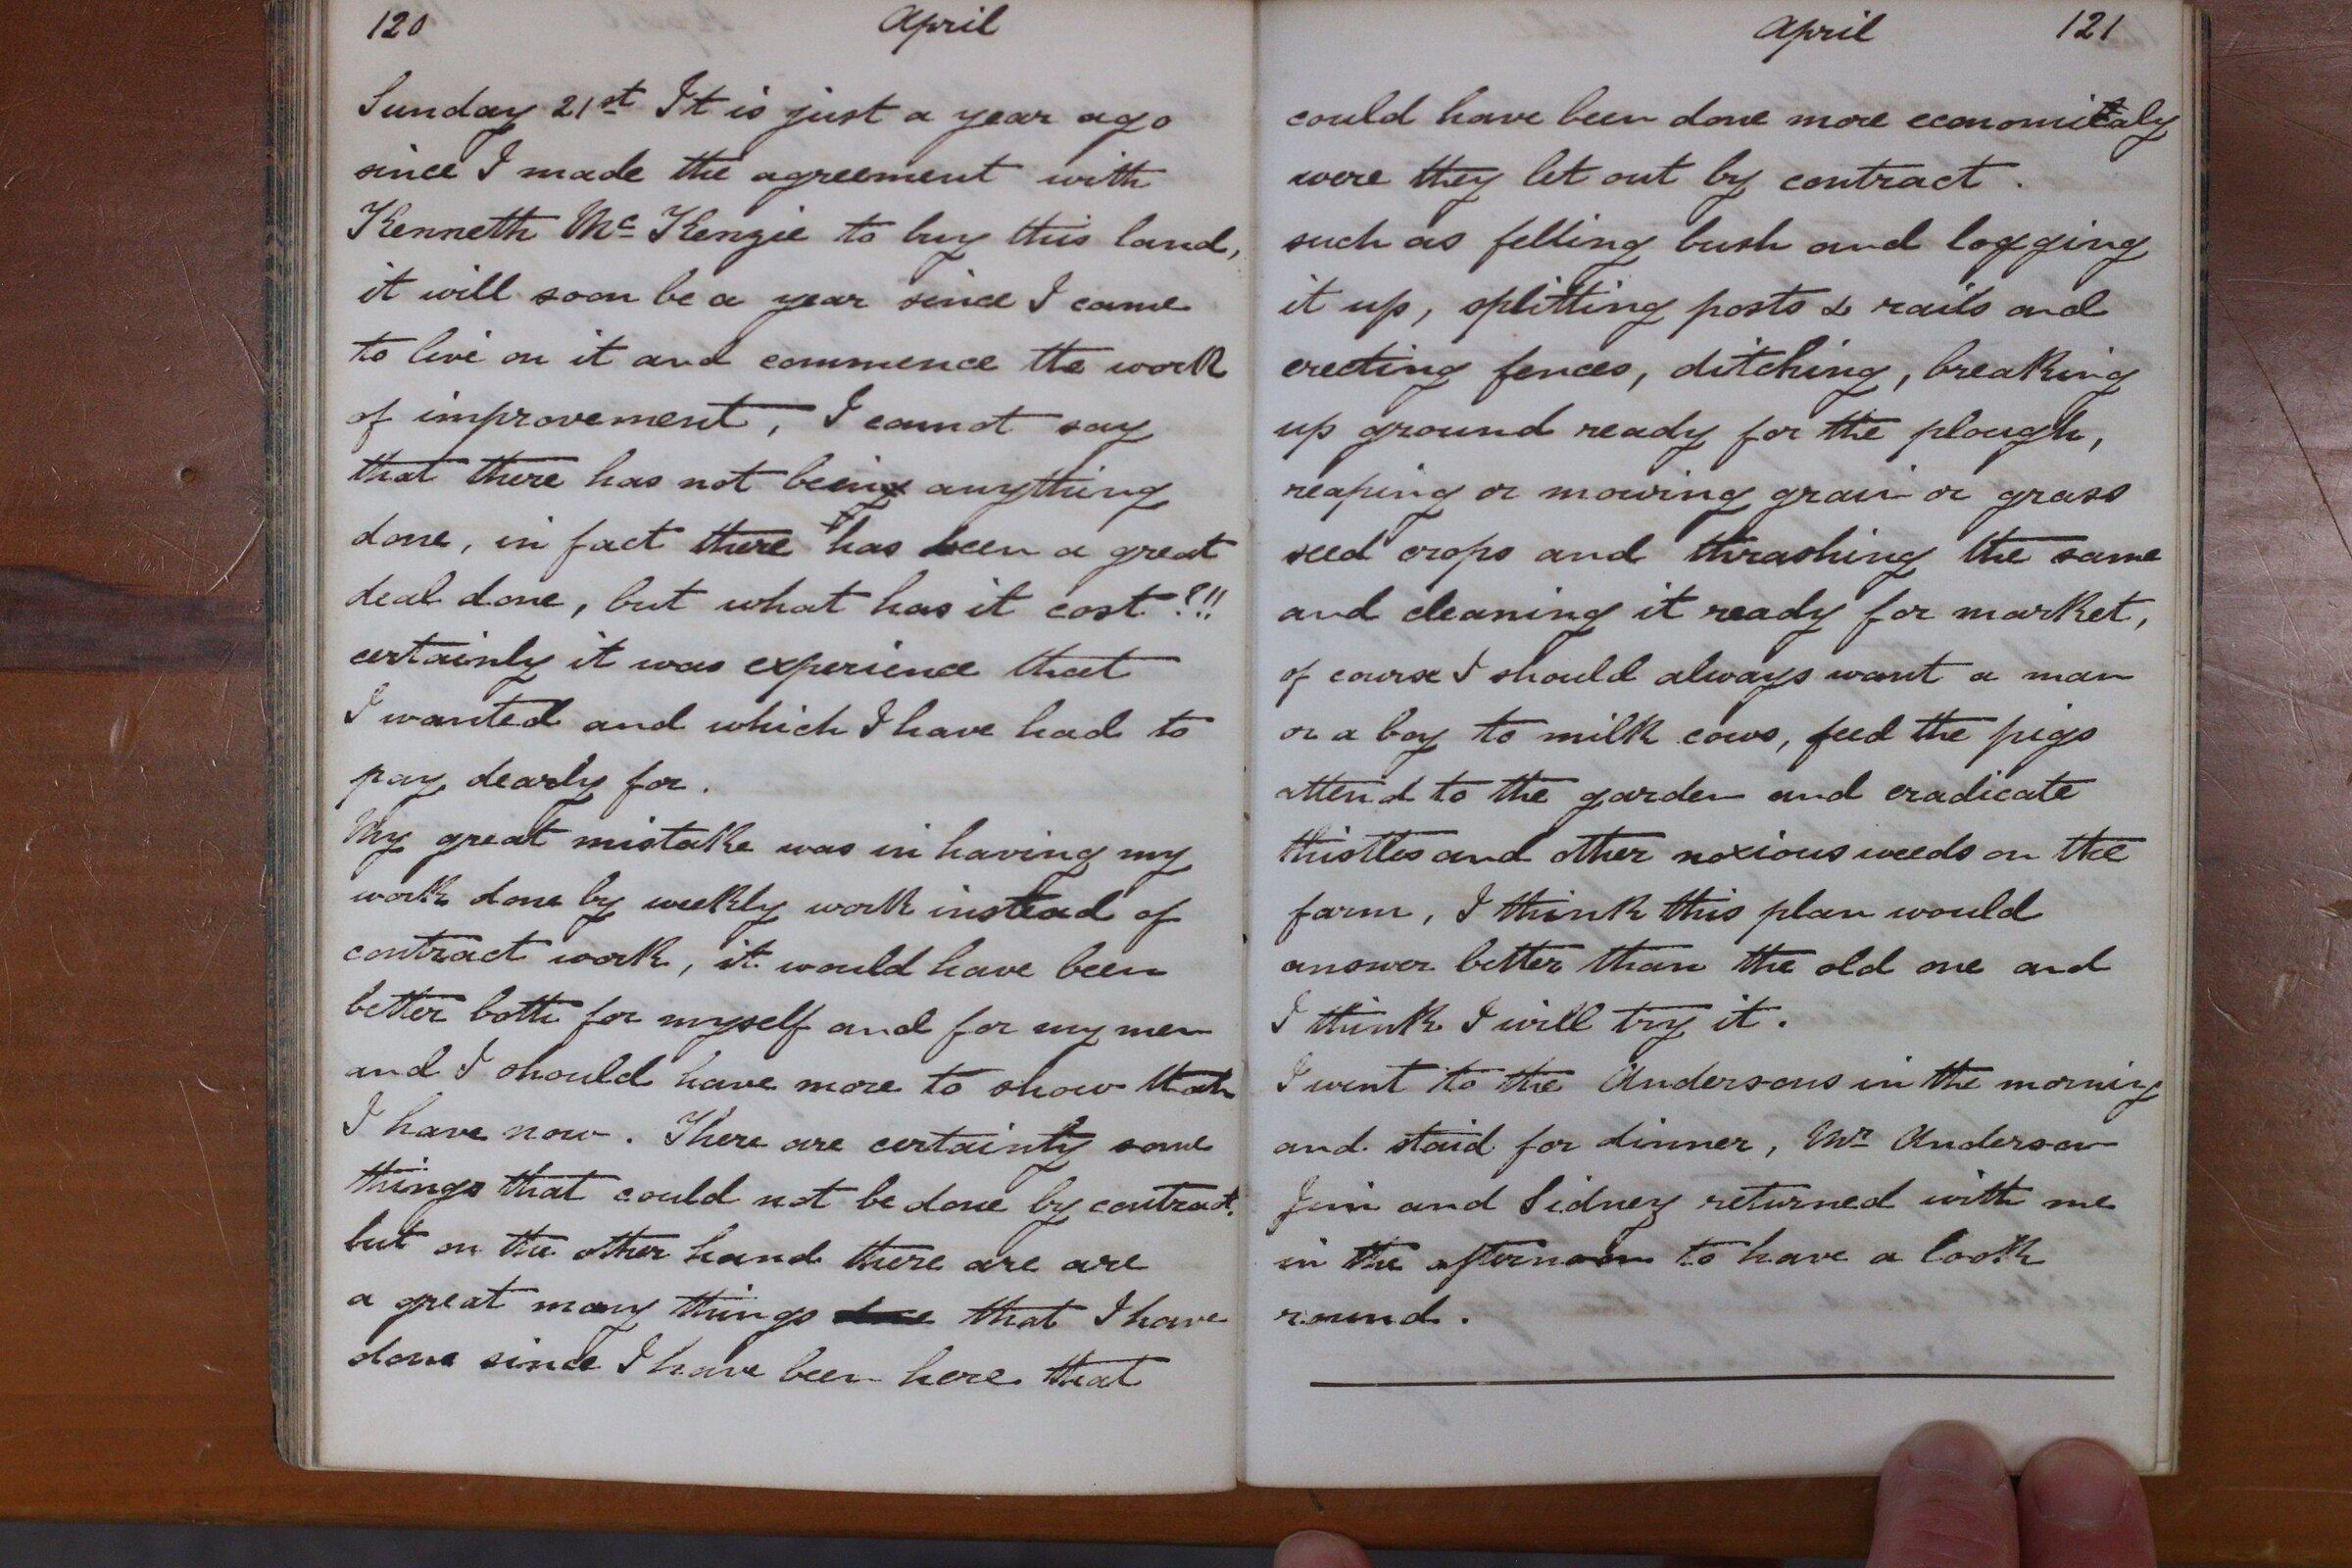 120 April
Sunday 21st It is just a year ago
since I made the agreement with
Kenneth Mc Kenzie to buy this land,
it will soon be a year since I came
to live on it and commence the work
of improvement, I cannot say
that there has not being anything
done, in fact there has been a great
deal done, but what has it cost?!!
certainly it was experience that
I wanted and which I have had to
pay dearly for.
My great mistake was in having my
work done by weekly work instead of
contract work, it would have been
better both for myself and for my men
and I should have more to show than
I have now. There are certainty some
things that could not be done by contract,
but on the other hand there are are
a great many things that I have
done since I have been here that
April 121
could have been done more economicaly
were they let out by contract.
such as felling bush and logging
it up, splitting posts & rails and
erecting fences, ditching, breaking
up ground ready for the plough,
reaping or mowing grain or grass
seed crops and thrashing the same
and cleaning it ready for market,
of course I should always want a man
or a boy to milk cows, feed the pigs
attend to the garden and eradicate
thistles and other noxious weeds on the
farm, I think this plan would
answer better than the old one and
I think I will try it.
I went to the Andersons in the morning
and staid for dinner, Mr Anderson
Jim and Sidney returned with me
in the afternoon to have a look
round.